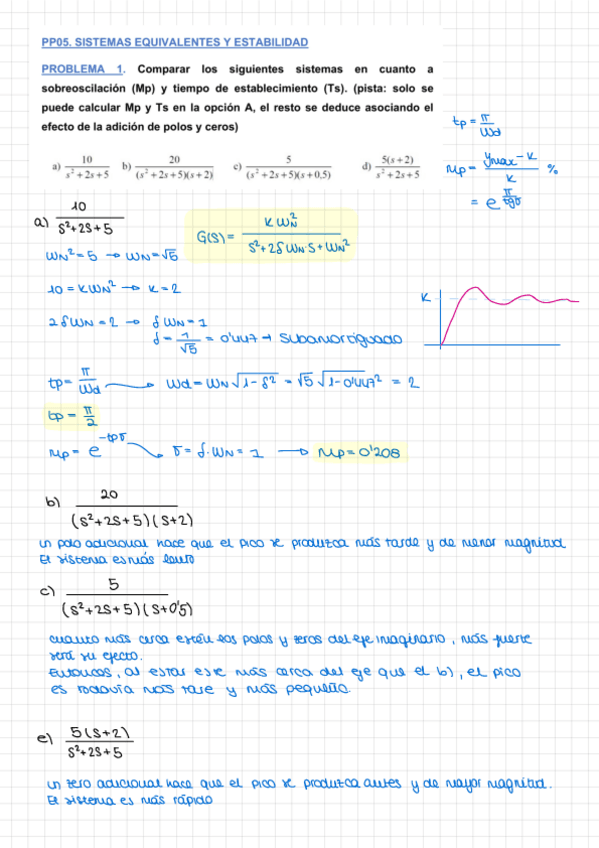 PP05. SISTEMAS EQUIVALENTES Y ESTABILIDAD
PROBLEMA 1. Comparar los siguientes sistemas en cuanto a
sobreoscilación (Mp) y tiempo de establecimiento (Ts). (pista: solo se
puede calcular Mp y Ts en la opción A, el resto se deduce asociando el
efecto de la adición de polos y ceros)
a) 10/(s²+2s+5) b) 20/((s²+2s+5)(s+2)) c) 5/((s²+2s+5)(s+0,5)) d) 5(s+2)/(s²+2s+5)
tp = π/Wd
Mp = (ymax - K)/K %
= e^(π/tgσ)
a) 10/(S²+2S+5)
G(S) = K WN²/(S²+2δWN·S+WN²)
WN² = 5 → WN = √5
10 = K WN² → K = 2
K
2δWN = 2 → δWN = 1
δ = 1/√5 = 0'447 → Subamortiguado
tp = π/Wd → Wd = WN√(1-δ²) = √5 √(1-0'447²) = 2
tp = π/2
Mp = e^(-tpσ) → σ = δ·WN = 1 → Mp = 0'208
b) 20/((S²+2S+5)(S+2))
un polo adicional hace que el pico se produzca más tarde y de menor magnitud.
El sistema es más lento
c) 5/((S²+2S+5)(S+0'5))
cuanto más cerca estén los polos y zeros del eje imaginario, más fuerte
será su efecto.
Entonces, al estar este más cerca del eje que el b), el pico
es todavía más tarde y más pequeño.
e) 5(S+2)/(S²+2S+5)
un zero adicional hace que el pico se produzca antes y de mayor magnitud.
El sistema es más rápido